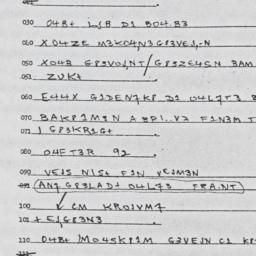 030 O4B+ L1B D1 BO4.B3
040 XO4ZE M3KO4N3G83VE1,-N
050 XO4B G83VO1NT/G83ZE4SN BAM
ZUK+
060 E44X G1DEN7KP D1 O4L7T3
070 BAKP1M3N F1N3M
071 1 G83KR1G+
080 O4FT3R 92
090 VE1S N1S+ F1N VE1M3N
091 AN7 G83LAD+ O4L73 TRA.NT
100 CM KRO1VM7
101 + E1G83N3
110 O4B+ /MO4SKP1M G3VE1N C1